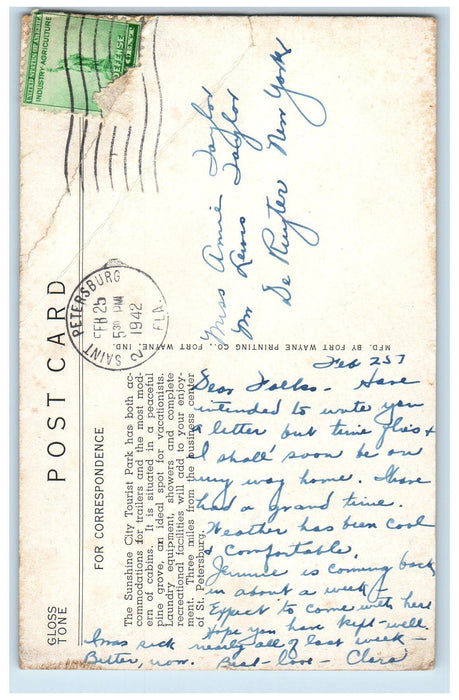 UNITED STATES OF AMERICA
INDUSTRY-AGRICULTURE
DEFENSE
SAINT PETERSBURG
FEB 25
5 30 PM
1942
2
FLA.
POST CARD
FOR CORRESPONDENCE
GLOSS
TONE
The Sunshine City Tourist Park has both ac-
commodations for trailers and the most mod-
ern of cabins. It is situated in a peaceful
pine grove, an ideal spot for vacationists.
Laundry equipment, showers and complete
recreational facilities will add to your enjoy-
ment. Three miles from the business center
of St. Petersburg.
MFD. BY FORT WAYNE PRINTING CO., FORT WAYNE, IND.
Miss Annie Taylor
Mr Lewis Taylor
De Ruyter New York
Feb 25
Dear Folks - Have
intended to write you
a letter but time flies &
I shall soon be on
my way home. Have
had a grand time.
Weather has been cool
& comfortable.
Jennie is coming back
in about a week -
Expect to come with her
Hope you have kept well
I was sick nearly all of last week -
Better, now. Best - love - Clara